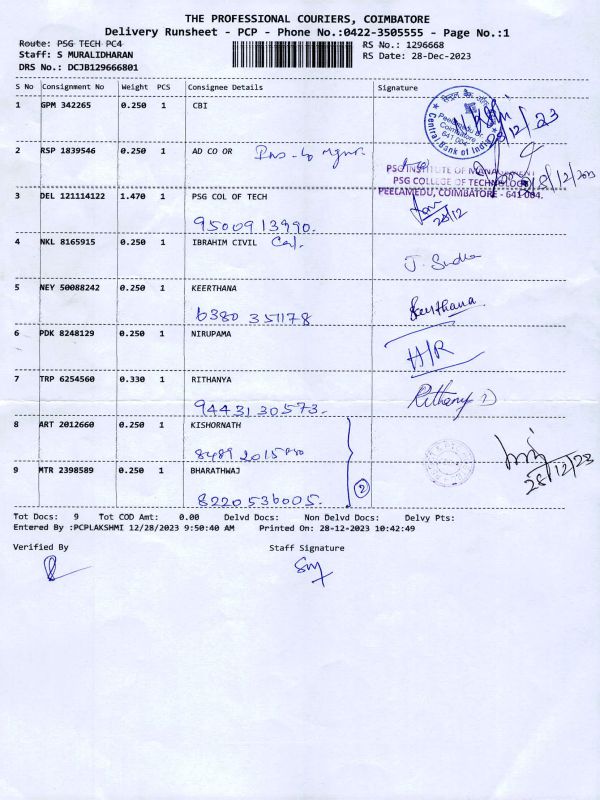 THE PROFESSIONAL COURIERS, COIMBATORE
Delivery Runsheet - PCP - Phone No.:0422-3505555 - Page No.:1
Route: PSG TECH PC4 RS No.: 1296668
Staff: S MURALIDHARAN RS Date: 28-Dec-2023
DRS No.: DCJB129666801
S No Consignment No Weight PCS Consignee Details Signature
1 GPM 342265 0.250 1 CBI
Central Bank of India
Peelamedu
Coimbatore
641 004
28/12/23
2 RSP 1839546 0.250 1 AD CO OR
PSG INSTITUTE OF MANAGEMENT
PSG COLLEGE OF TECHNOLOGY
PEELAMEDU, COIMBATORE - 641 004.
28/12/2023
3 DEL 121114122 1.470 1 PSG COL OF TECH
9500913990. 28/12
4 NKL 8165915 0.250 1 IBRAHIM CIVIL
J. Sudha
5 NEY 50088242 0.250 1 KEERTHANA
6380 351178 Keerthana
6 PDK 8248129 0.250 1 NIRUPAMA
H/R
7 TRP 6254560 0.330 1 RITHANYA
9443130573. Rithanya D
8 ART 2012660 0.250 1 KISHORNATH
9 MTR 2398589 0.250 1 BHARATHWAJ
8220536005. 2 28/12/23
Tot Docs: 9 Tot COD Amt: 0.00 Delvd Docs: Non Delvd Docs: Delvy Pts:
Entered By :PCPLAKSHMI 12/28/2023 9:50:40 AM Printed On: 28-12-2023 10:42:49
Verified By Staff Signature